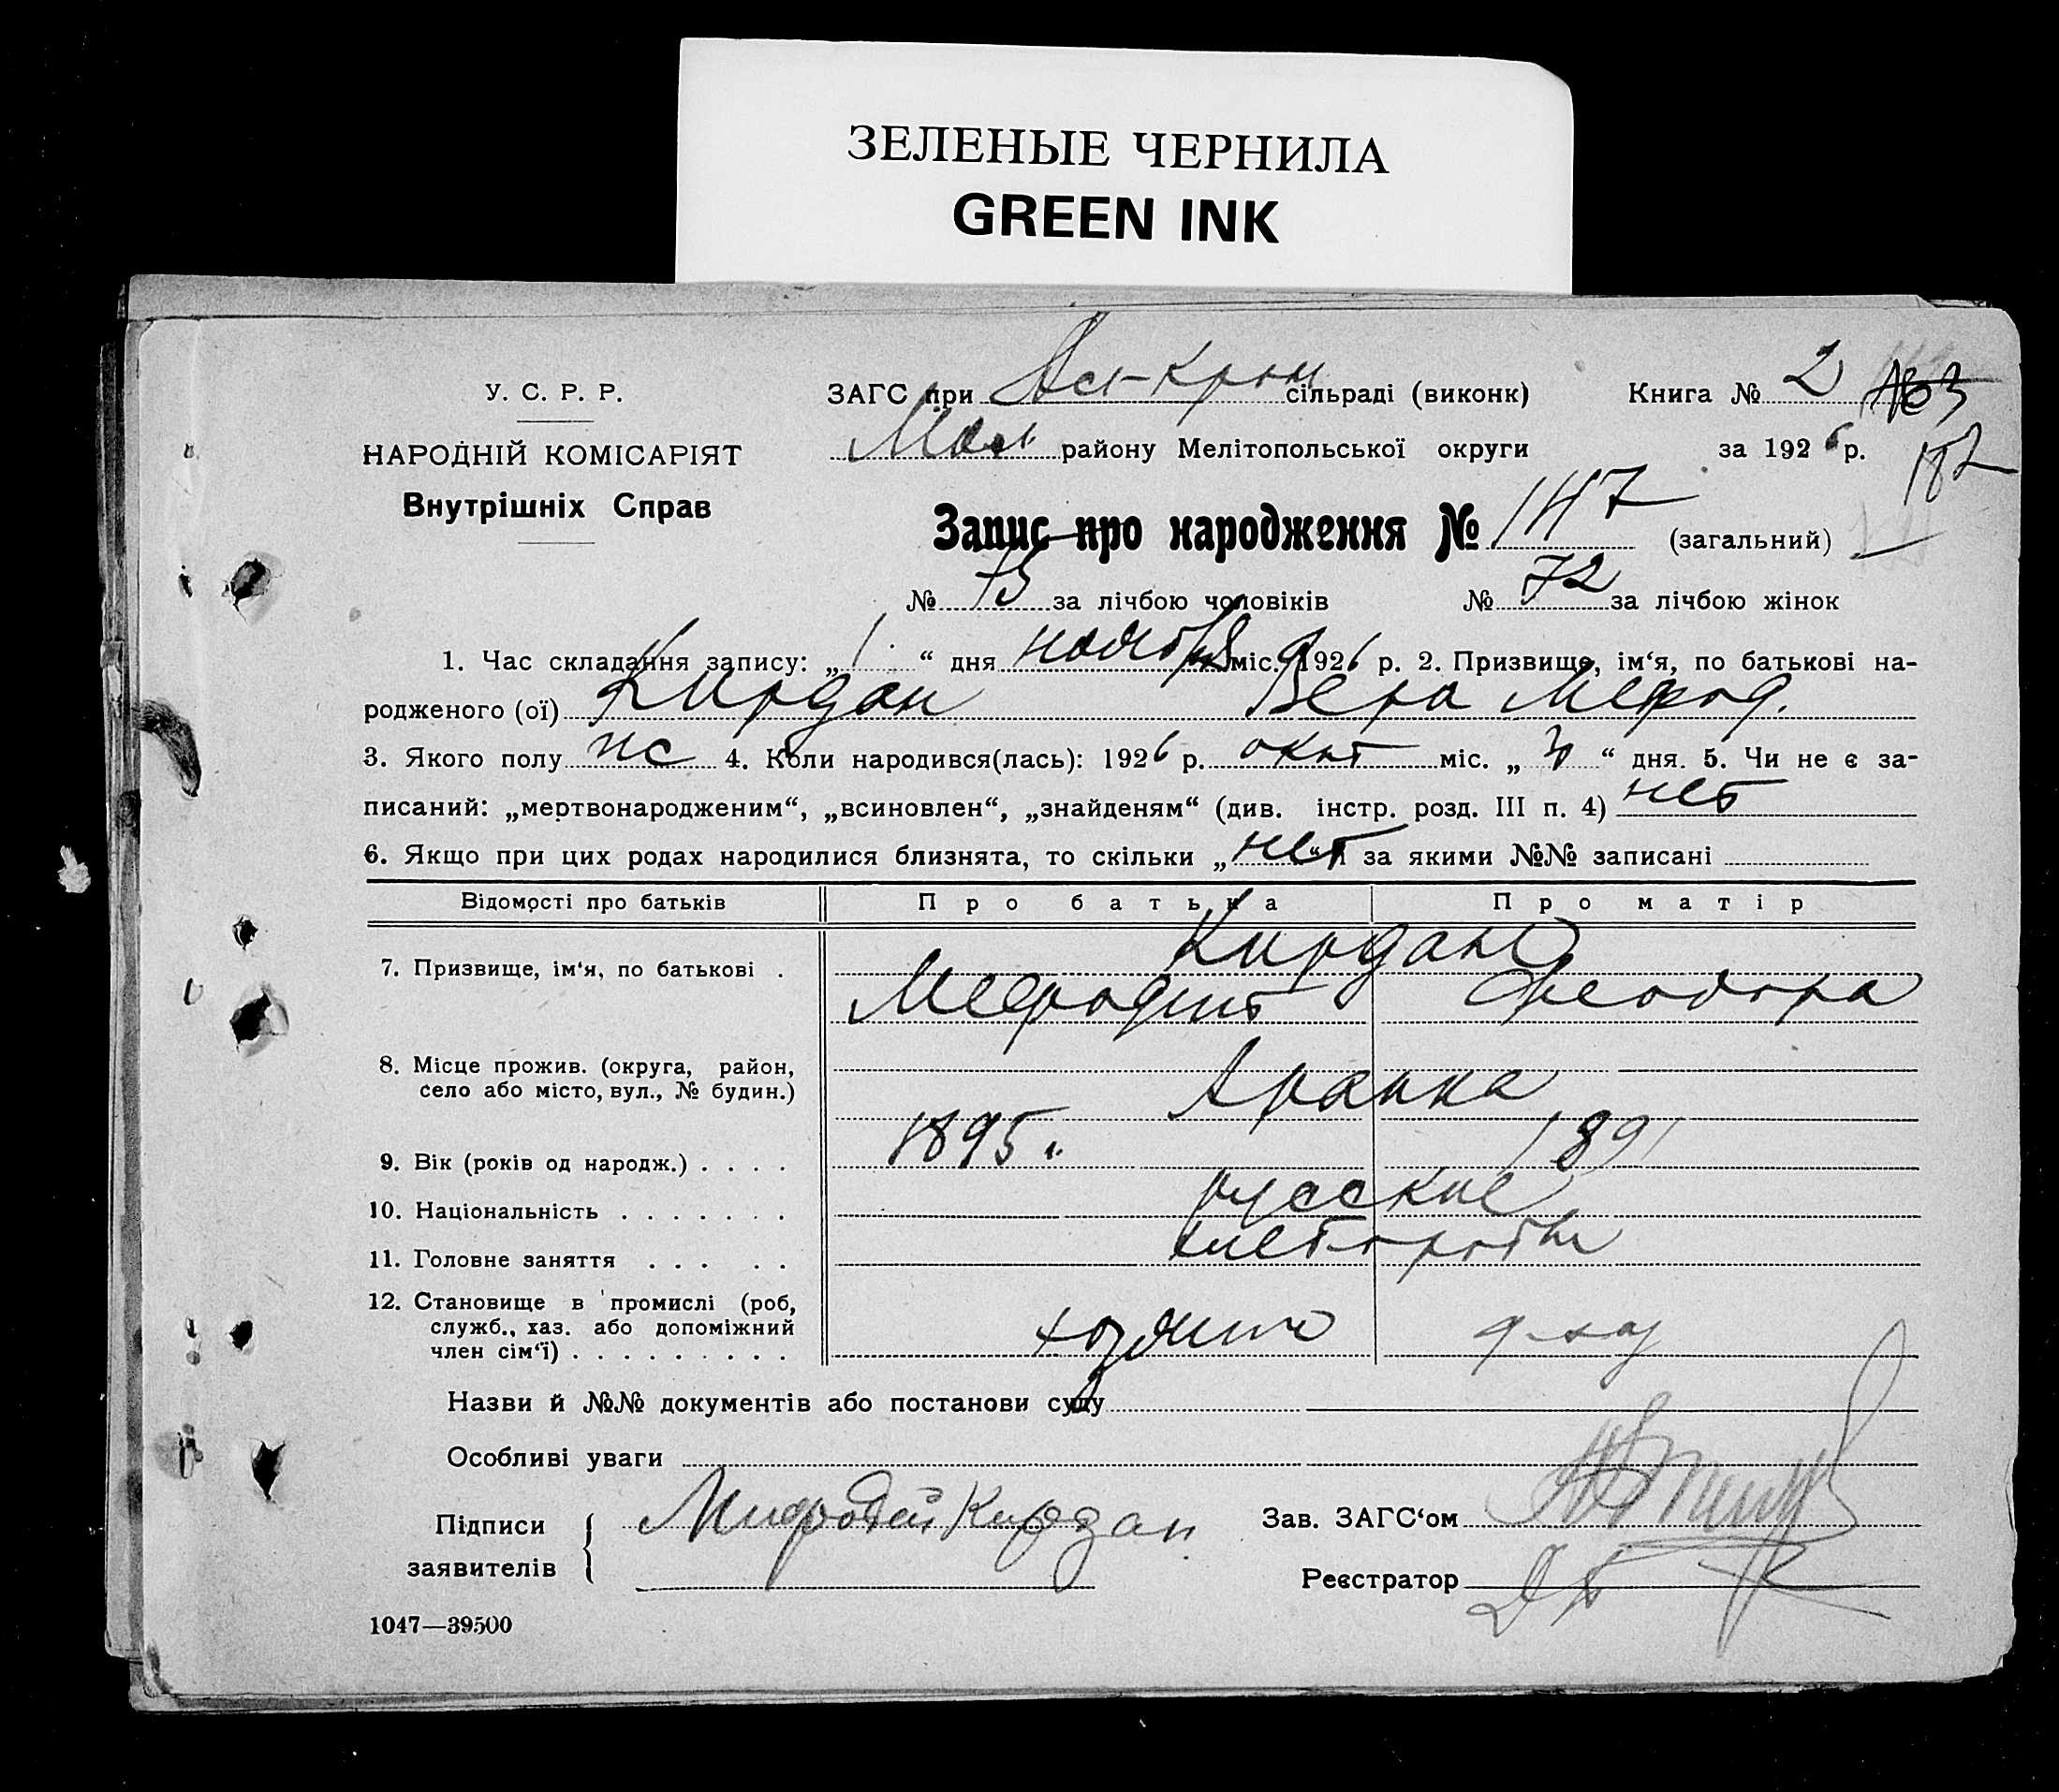 ЗЕЛЕНЫЕ ЧЕРНИЛА
GREEN INK
У. С. Р. Р.
НАРОДНІЙ КОМІСАРІЯТ
Внутрішніх Справ
ЗАГС при сільраді (виконк)
району Мелітопольської округи
Книга № 2
за 1926 р.
182
Запис про народження № 147 (загальний)
№ 75 за лічбою чоловіків № 72 за лічбою жінок
1. Час складання запису: „1“ дня ноября міс. 1926 р. 2. Призвище, ім‘я, по батькові на-
родженого (ої) Кирдан Вера Мефод.
3. Якого полу жс 4. Коли народився(лась): 1926 р. окт міс. „ “ дня. 5. Чи не є за-
писаний: „мертвонародженим“, „всиновлен“, „знайденям“ (див. інстр. розд. III п. 4) нет
6. Якщо при цих родах народилися близнята, то скільки „нет“ за якими №№ записані
Відомості про батьків Про батька Про матір
7. Призвище, ім‘я, по батькові . Кирдан
Мефодий Феодора
8. Місце прожив. (округа, район,
село або місто, вул., № будин.)
9. Вік (років од народж.) . . . . 1895 1891
10. Національність . . . . . . . русские
11. Головне заняття . . . . . хлеборобы
12. Становище в промислі (роб,
служб., хаз. або допоміжний
член сім‘ї) . . . . . . . . . хозяин
Назви й №№ документів або постанови суду
Особливі уваги
Підписи
заявителів
Мифодей Кирдан
Зав. ЗАГС‘ом
Реєстратор
1047—39500